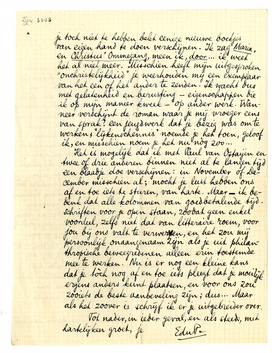 je toch niet te hebben
eenige nieuwe boekjes
van eigen hand te doen verschijnen. Ik zag Maria,
en Christus' Ommegang, meen ik, door... ik weet
het al niet meer. Misschien heeft mijn uitgesproken
"onchristelijkheid" je weerhouden mij een exemplaar
van het een of het ander te zenden. Ik wacht dus
met gelatenheid en berusting - eigenschappen die
ik op mijn manier kweek - op ander werk. Wan-
neer verschijnt de roman waar je mij vroeger eens
van sprak? een jeugdwerk dat je bezig was om te
werken;
noemde je het toen, geloof
ik, en misschien noem je het nu nog zoo...
Het is mogelijk dat ik met Paul van Ostayen en
twee of drie anderen binnen niet al te langen tijd
een blaadje doe verschijnen: in November of De-
cember misschien al; mocht je lust hebben ons
af en toe iets te sturen, van harte. Maar - ik be-
denk dat alle kolommen van goedbetalende tijd-
schriften voor je open staan, zoodat geen enkel
voordeel, zelfs niet dat van litteraire toon, voor
jou bij ons valt te verwerven, en het zou mij
persoonlijk onaangenaam zijn als je uit philan-
thropische beweegredenen alleen erin toestemde
mee te werken. Nu is er nog een kleine kans
dat je toch nog af en toe iets pleegt dat je moeilijk
ergens anders kunt plaatsen, en voor ons zou
zooiets de beste aanbeveling zijn; dus... Maar
als het zoover is schrijf ik er je uitgebreider over.
Tot nader, in ieder geval, en als steeds, met
hartelijken groet, je
EduP.